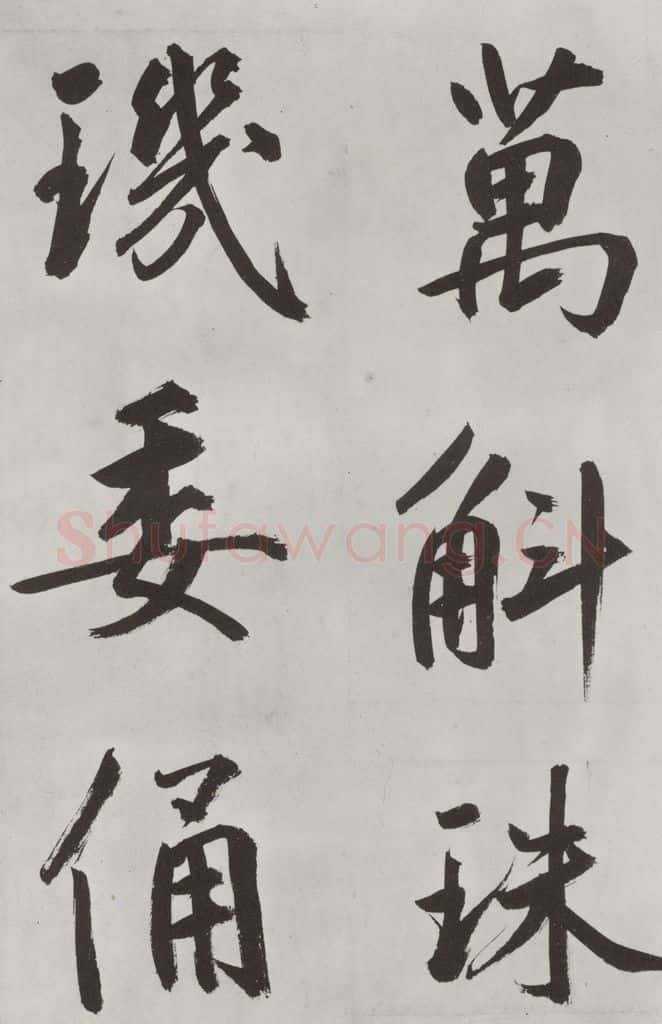 萬斛珠
璣委俑
Shufawang.CN